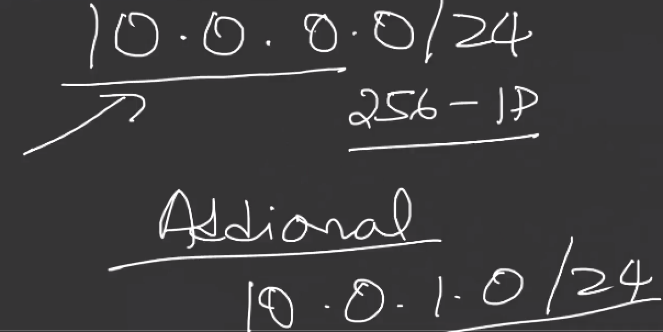 10.0.0.0/24
256-IP
Addional
10.0.1.0/24